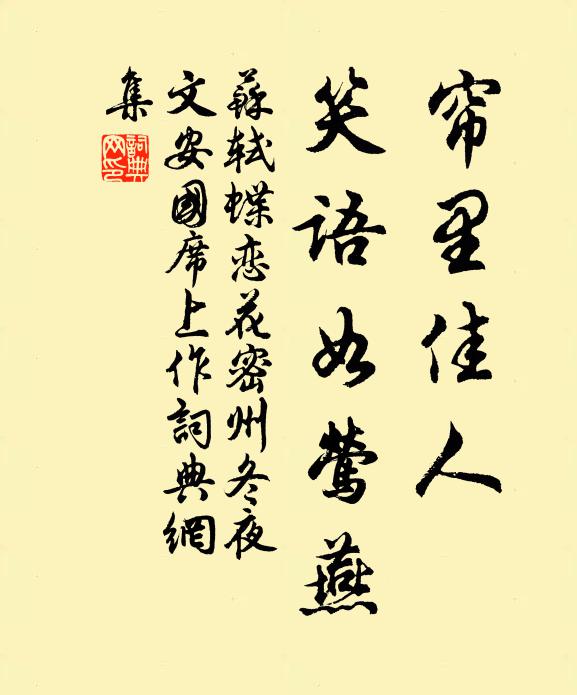 帘里佳人
笑语如莺燕
蘇軾蝶恋花密州冬夜
文安國席上作詞典網
集
詞典网印